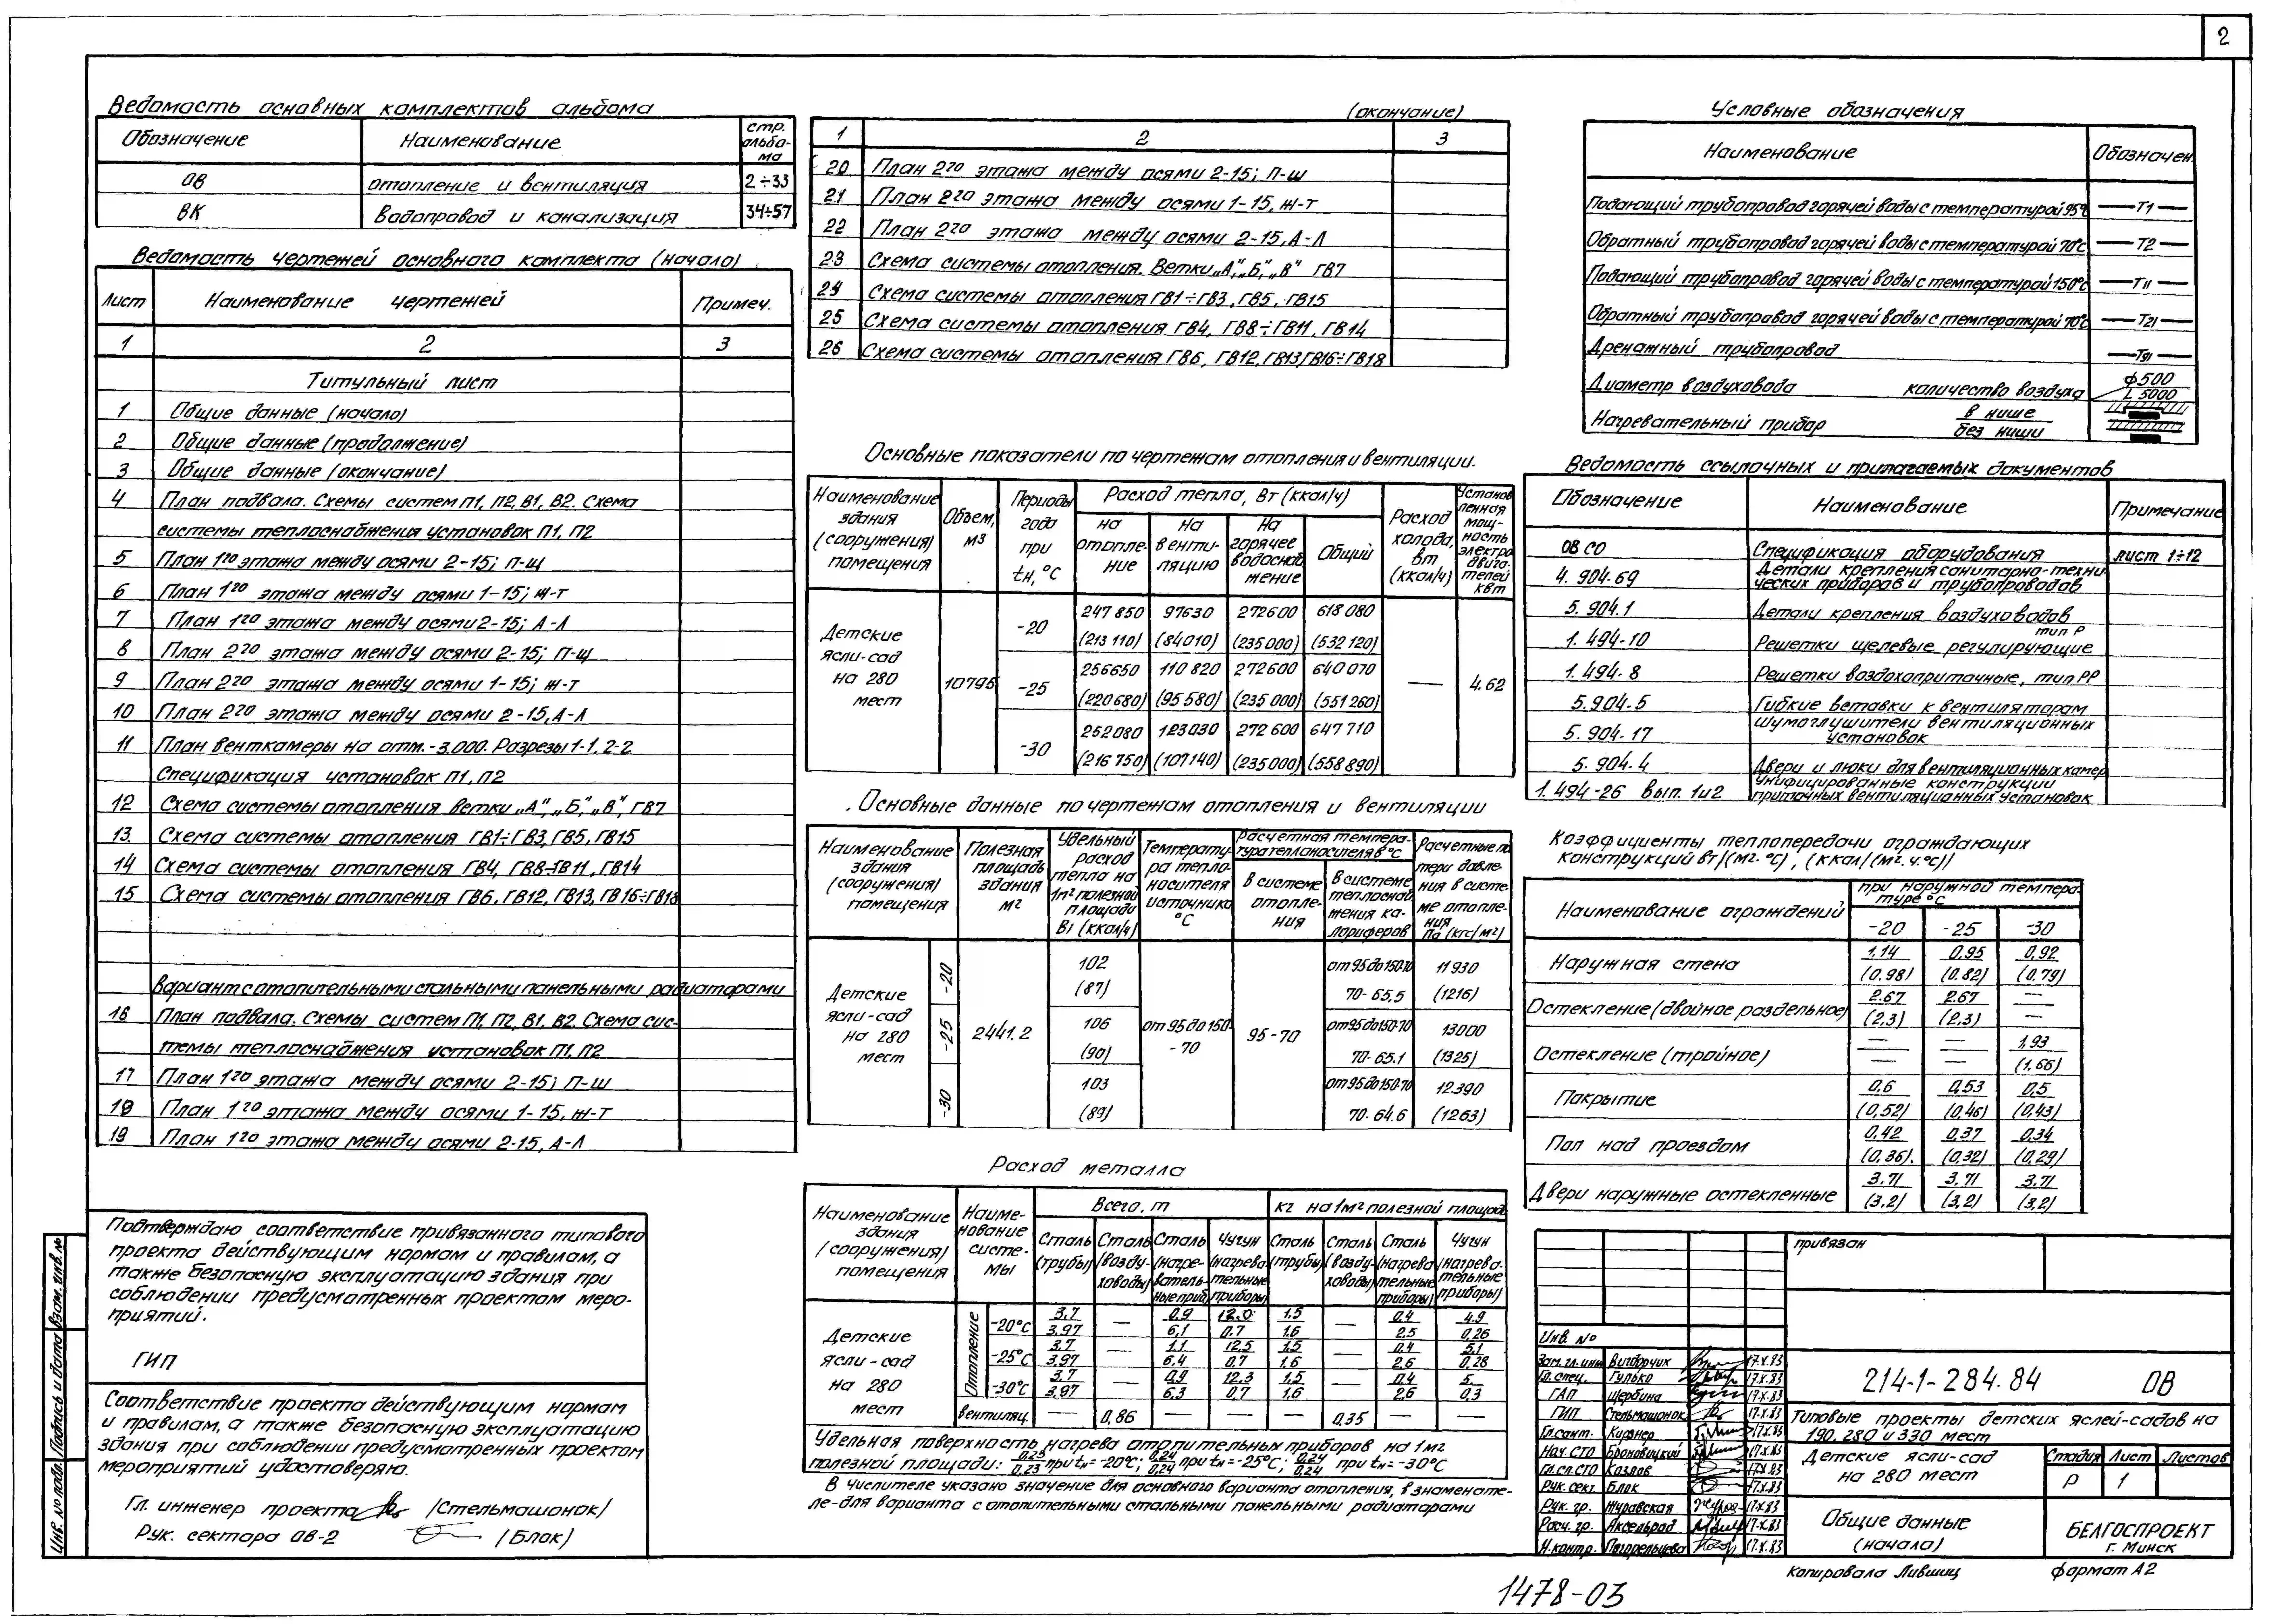 2
Ведомость основных комплектов альбома
Обозначение | Наименование | стр. альбо-ма
ОВ | отопление и вентиляция | 2÷33
ВК | водопровод и канализация | 34÷57
Ведомость чертежей основного комплекта (начало)
Лист | Наименование чертежей | Примеч.
1 | 2 | 3
Титульный лист
1 | Общие данные (начало)
2 | Общие данные (продолжение)
3 | Общие данные (окончание)
4 | План подвала. Схемы систем П1, П2, В1, В2. Схема
системы теплоснабжения установок П1, П2
5 | План 1го этажа между осями 2-15; п-щ
6 | План 1го этажа между осями 1-15; ж-т
7 | План 1го этажа между осями 2-15; А-Л
8 | План 2го этажа между осями 2-15; п-щ
9 | План 2го этажа между осями 1-15; ж-т
10 | План 2го этажа между осями 2-15, А-Л
11 | План венткамеры на отм. -3.000. Разрезы 1-1, 2-2
Спецификация установок П1, П2
12 | Схема системы отопления ветки „А", „Б", „В", ГВ7
13. | Схема системы отопления ГВ1÷ГВ3, ГВ5, ГВ15
14 | Схема системы отопления ГВ4, ГВ8÷ГВ11, ГВ14
15 | Схема системы отопления ГВ6, ГВ12, ГВ13, ГВ16÷ГВ18
Вариант с отопительными стальными панельными радиаторами
16 | План подвала. Схемы систем П1, П2, В1, В2. Схема сис-
темы теплоснабжения установок П1, П2
17 | План 1го этажа между осями 2-15; п-ш
18 | План 1го этажа между осями 1-15, ж-т
19 | План 1го этажа между осями 2-15, А-Л
Подтверждаю соответствие привязанного типового
проекта действующим нормам и правилам, а
также безопасную эксплуатацию здания при
соблюдении предусмотренных проектом меро-
приятий.
ГИП
Соответствие проекта действующим нормам
и правилам, а также безопасную эксплуатацию
здания при соблюдении предусмотренных проектом
мероприятий удостоверяю.
Гл. инженер проекта /Стельмашонок/
Рук. сектора ОВ-2 /Блок/
Инв. № подл. | Подпись и дата | Взам. инв. №
(окончание)
1 | 2 | 3
20 | План 2го этажа между осями 2-15; п-ш
21 | План 2го этажа между осями 1-15, ж-т
22 | План 2го этажа между осями 2-15, А-Л
23 | Схема системы отопления. Ветки „А", „Б", „В" ГВ7
24 | Схема системы отопления ГВ1÷ГВ3, ГВ5, ГВ15
25 | Схема системы отопления ГВ4, ГВ8÷ГВ11, ГВ14
26 | Схема системы отопления ГВ6, ГВ12, ГВ13, ГВ16÷ГВ18
Основные показатели по чертежам отопления и вентиляции.
Наименование здания (сооружения) помещения | Объем, м3 | Периоды года при tн, °С | Расход тепла, Вт (ккал/ч) | Расход холода, вт (ккал/ч) | Установленная мощ-ность электро двига-телей квт
на отопле-ние | на венти-ляцию | на горячее водоснаб жение | Общий
Детские ясли-сад на 280 мест | 10795 | -20 | 247 850 | 97630 | 272600 | 618 080 | — | 4.62
(213 110) | (84010) | (235 000) | (532 120)
-25 | 256650 | 110 820 | 272600 | 640 070
(220 680) | (95 580) | (235 000) | (551 260)
-30 | 252080 | 123030 | 272 600 | 647 710
(216 750) | (107 140) | (235 000) | (558 890)
Основные данные по чертежам отопления и вентиляции
Наименование здания (сооружения) помещения | Полезная площадь здания м2 | Удельный расход тепла на 1м2 полезной площади Вт (ккал/ч) | Температу-ра тепло-носителя источника °С | Расчетная темпера-тура теплоносителя в °С | Расчетные по тери давле-ния в систе-ме отопле-ния Па (кгс/м2)
в системе отопле-ния | в системе теплоснаб жения ка-лориферов
Детские ясли-сад на 280 мест | -20 | 2441.2 | 102 (87) | от 95 до 150-70 | 95-70 | от 95 до 150-70 70-65,5 | 11930 (1216)
-25 | 106 (90) | от 95 до 150-70 70-65.1 | 13000 (1325)
-30 | 103 (89) | от 95 до 150-70 70-64.6 | 12390 (1263)
Расход металла
Наименование здания (сооружения) помещения | Наиме-нование систе-мы | Всего, т | кг на 1м2 полезной площади
Сталь (трубы) | Сталь (возду-ховоды) | Сталь (нагре-ватель-ные приб) | Чугун (нагрева тельные приборы) | Сталь (трубы) | Сталь (возду-ховоды) | Сталь (нагрева тельные приборы) | Чугун (нагрева-тельные приборы)
Детские ясли-сад на 280 мест | Отопление | -20°С | 3.7/3.97 | — | 0.9/6,1 | 12.0/0.7 | 1.5/1.6 | — | 0.4/2.5 | 4.9/0,26
-25°С | 3.7/3,97 | — | 1.1/6.4 | 12.5/0.7 | 1.5/1.6 | — | 0.4/2.6 | 5.1/0,28
-30°С | 3.7/3.97 | — | 0.9/6.3 | 12.3/0.7 | 1.5/1.6 | — | 0.4/2.6 | 5./0.3
вентиляц. | — | 0,86 | — | — | — | 0.35 | — | —
Удельная поверхность нагрева отопительных приборов на 1м2
полезной площади: 0.23/0.23 при tн=-20°С; 0.24/0.24 при tн=-25°С; 0.24/0.24 при tн=-30°С
В числителе указано значение для основного варианта отопления, в знаменате-
ле-для варианта с отопительными стальными панельными радиаторами
Условные обозначения
Наименование | Обозначен.
Подающий трубопровод горячей воды с температурой 95°С | —Т1—
Обратный трубопровод горячей воды с температурой 70°С | —Т2—
Подающий трубопровод горячей воды с температурой 150°С | —Т11—
Обратный трубопровод горячей воды с температурой 70°С | —Т21—
Дренажный трубопровод | —Т91—
Диаметр воздуховода количество воздуха | ф500 L 5000
Нагревательный прибор в нише / без ниши
Ведомость ссылочных и прилагаемых документов
Обозначение | Наименование | Примечание
ОВ СО | Спецификация оборудования | лист 1÷12
4. 904-69 | Детали крепления санитарно-техни ческих приборов и трубопроводов
5. 904.1 | Детали крепления воздуховодов
1. 494-10 | Решетки щелевые регулирующие тип Р
1. 494-8 | Решетки воздухоприточные, тип РР
5.904-5 | Гибкие вставки к вентиляторам
5. 904-17 | Шумоглушители вентиляционных установок
5. 904-4 | Двери и люки для вентиляционных камер
1. 494-26 вып. 1и2 | Унифицированные конструкции приточных вентиляционных установок
Коэффициенты теплопередачи ограждающих
конструкций вт/(м2·°С), (ккал/(м2.ч.°С))
Наименование ограждений | при наружной темпера-туре °С
-20 | -25 | -30
Наружная стена | 1.14 (0.98) | 0.95 (0.82) | 0,92 (0.79)
Остекление (двойное раздельное) | 2.67 (2.3) | 2.67 (2,3) | — —
Остекление (тройное) | — — | — — | 1,93 (1,66)
Покрытие | 0,6 (0,52) | 0,53 (0,46) | 0,5 (0,43)
Пол над проездом | 0.42 (0,36). | 0,37 (0,32) | 0.34 (0,29)
Двери наружные остекленные | 3.71 (3,2) | 3,71 (3,2) | 3.71 (3,2)
привязан
Инв. №
Зам. гл. инж | Вигдорчик | 17.X.83
Гл. спец. | Гулько | 17.X.83
ГАП | Щербина | 17.X.83
ГИП | Стельмашонок | 17.X.83
Гл. сант. | Кирзнер | 17.X.83
Нач. СТО | Броновицкий | 17.X.83
Гл. сп. СТО | Козлов | 17.X.83
Рук. сект | Блок | 17.X.83
Рук. гр. | Журавская | 17.X.83
Расч. гр. | Аксельрод | 17.X.83
Н.контр. | Погорельцева | 17.X.83
214-1-284.84 ОВ
Типовые проекты детских яслей-садов на
190, 280 и 330 мест
Детские ясли-сад
на 280 мест
Стадия | Лист | Листов
Р | 1
Общие данные
(начала)
БЕЛГОСПРОЕКТ
г. Минск
Копировала Лившиц формат А2
1478-03